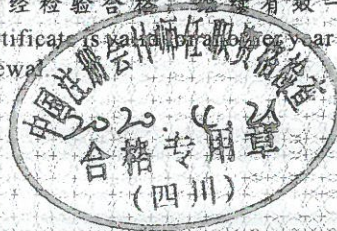 经检验合格,继续有效一
tificate is valid for another year
ewal
中国注册会计师任职资格检查
2020.4.26
合格专用章
(四川)